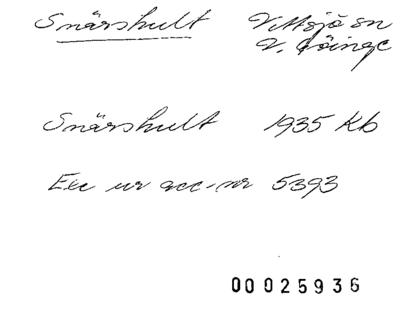 Snärshult Vittsjö sn
V. Göinge
Snärshult 1935 Kb
Exc ur acc.nr 5393
00025936